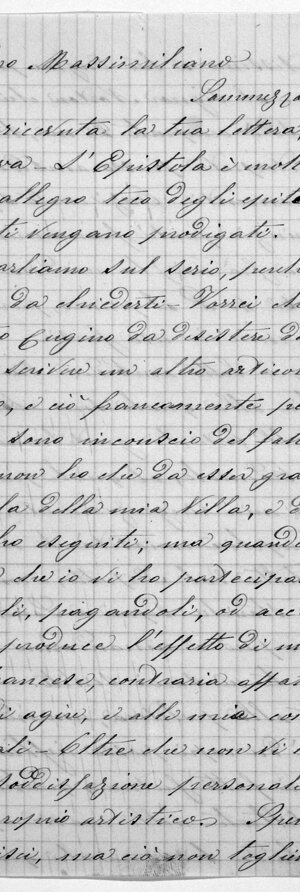 ro Massimiliano
Sammezza
ricevuta la tua lettera,
va - L'Epistola è molt
allegro teco degli epite
ti vengano prodigati.
arliamo sul serio, perch
da chiederti - Vorrei ch
o Eugino da desistere da
scrivere un altro artico
, e ciò francamente pe
sono inconscio del fat
non ho che da esser gra
la della mia Villa, e d
ho eseguiti; ma quando
che io vi ho partecipa
li, pagandoli, od acc
produce l'effetto di u
rancese, contraria affat
di agire, e alle mie con
ali - Oltre che non vi è
soddisfazione personal
roprio artistico. Sper
isci, ma ciò non toglie